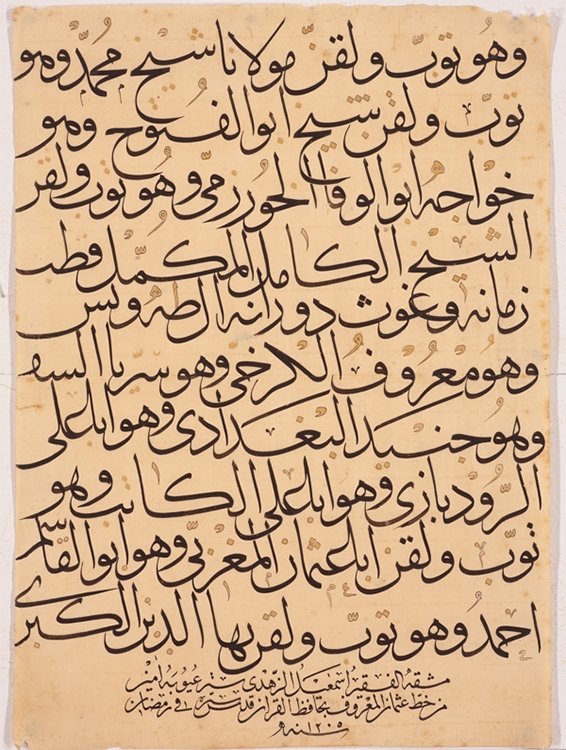 وهو توب ولقن مولانا شيخ محمد وهو
توب ولقن شيخ ابو الفتوح وهو
خواجه ابو الوفاء الخورزمى وهو توب ولقن
الشيخ الكامل المكمل قطب
زمانه وغوث دورانه ال طه ويس
وهو معروف الكرخى وهو سريا السقـ
وهو جنيد البغدادى وهو ابا على
الرودبازى وهو ابا على الكاتب وهو
توب ولقن ابا عثمان المغربى وهو ابو القاسم
احمد وهو توب ولقن بها الدين الكبرى
مشقه الفقير اسمعيل الزهدى ستر عيوبه امين
من خط عثمان المعروف بحافظ القران قدس سره فى رمضان
سنه ١٢٠٥